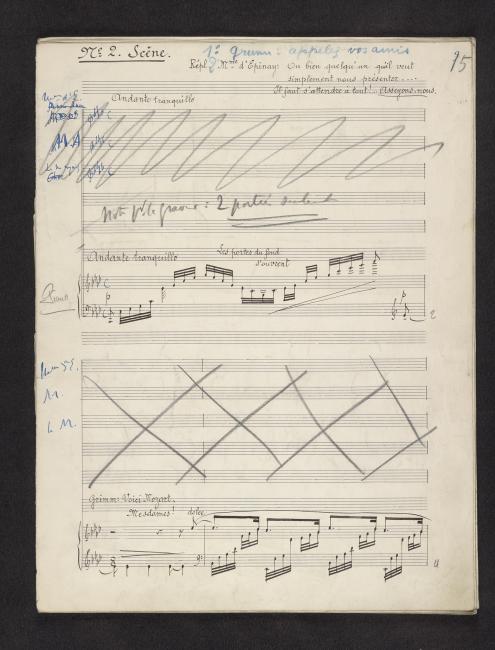 Nº 2. Scène.
1º Grimm: appelez vos amis
95
Répl: Mme d'Epinay: Ou bien quelqu'un qu'on veut
simplement nous présenter....
Il faut s'attendre à tout!.. Asseyons-nous.
Andante tranquillo
Note pr le graveur: 2 portées seulement
Andante tranquillo
Les portes du fond
s'ouvrent
Piano
p
p
M.
L. M.
Grimm: Voici Mozart,
Mesdames!
dolce